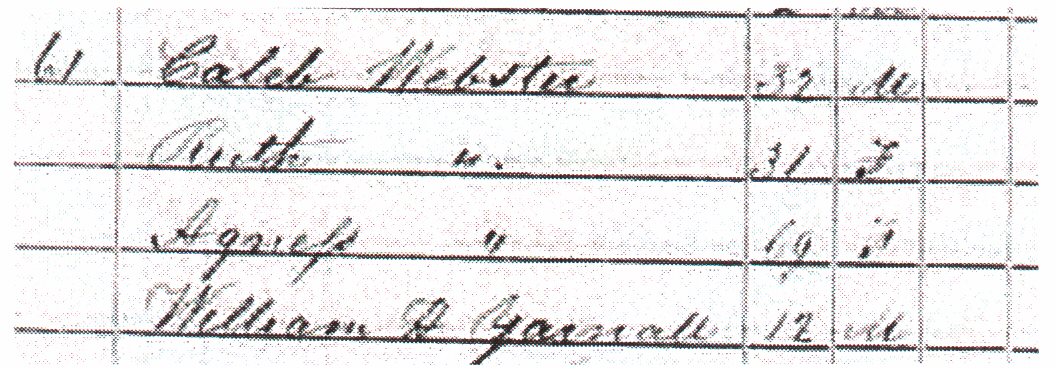 61 Caleb Webster 32 M
Ruth " 31 F
Agness " 69 F
William H Yarnall 12 M